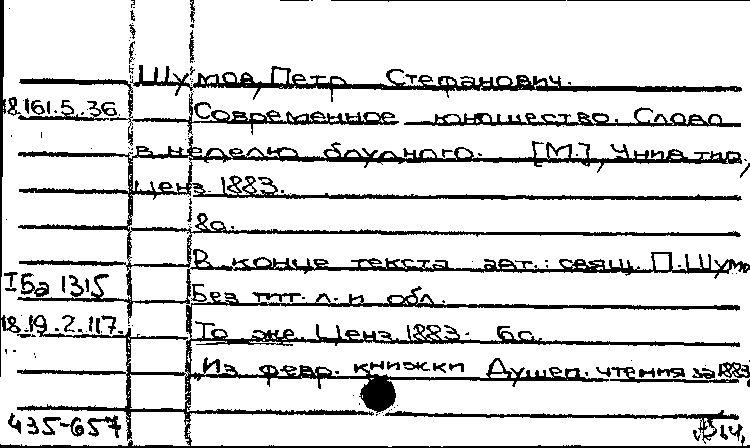 Шумов, Петр Стефанович.
18.161.5.36. Современное юношество. Слово
в неделю блудного. [М.], Унив. тип.,
ценз. 1883.
8о.
В конце текста авт.: свящ. П. Шумо
IБа 1315 Без тит. л. и обл.
18.19.2.117. То же. Ценз. 1883. 8о.
Из февр. книжки Душеп. чтения за 1883
435-657